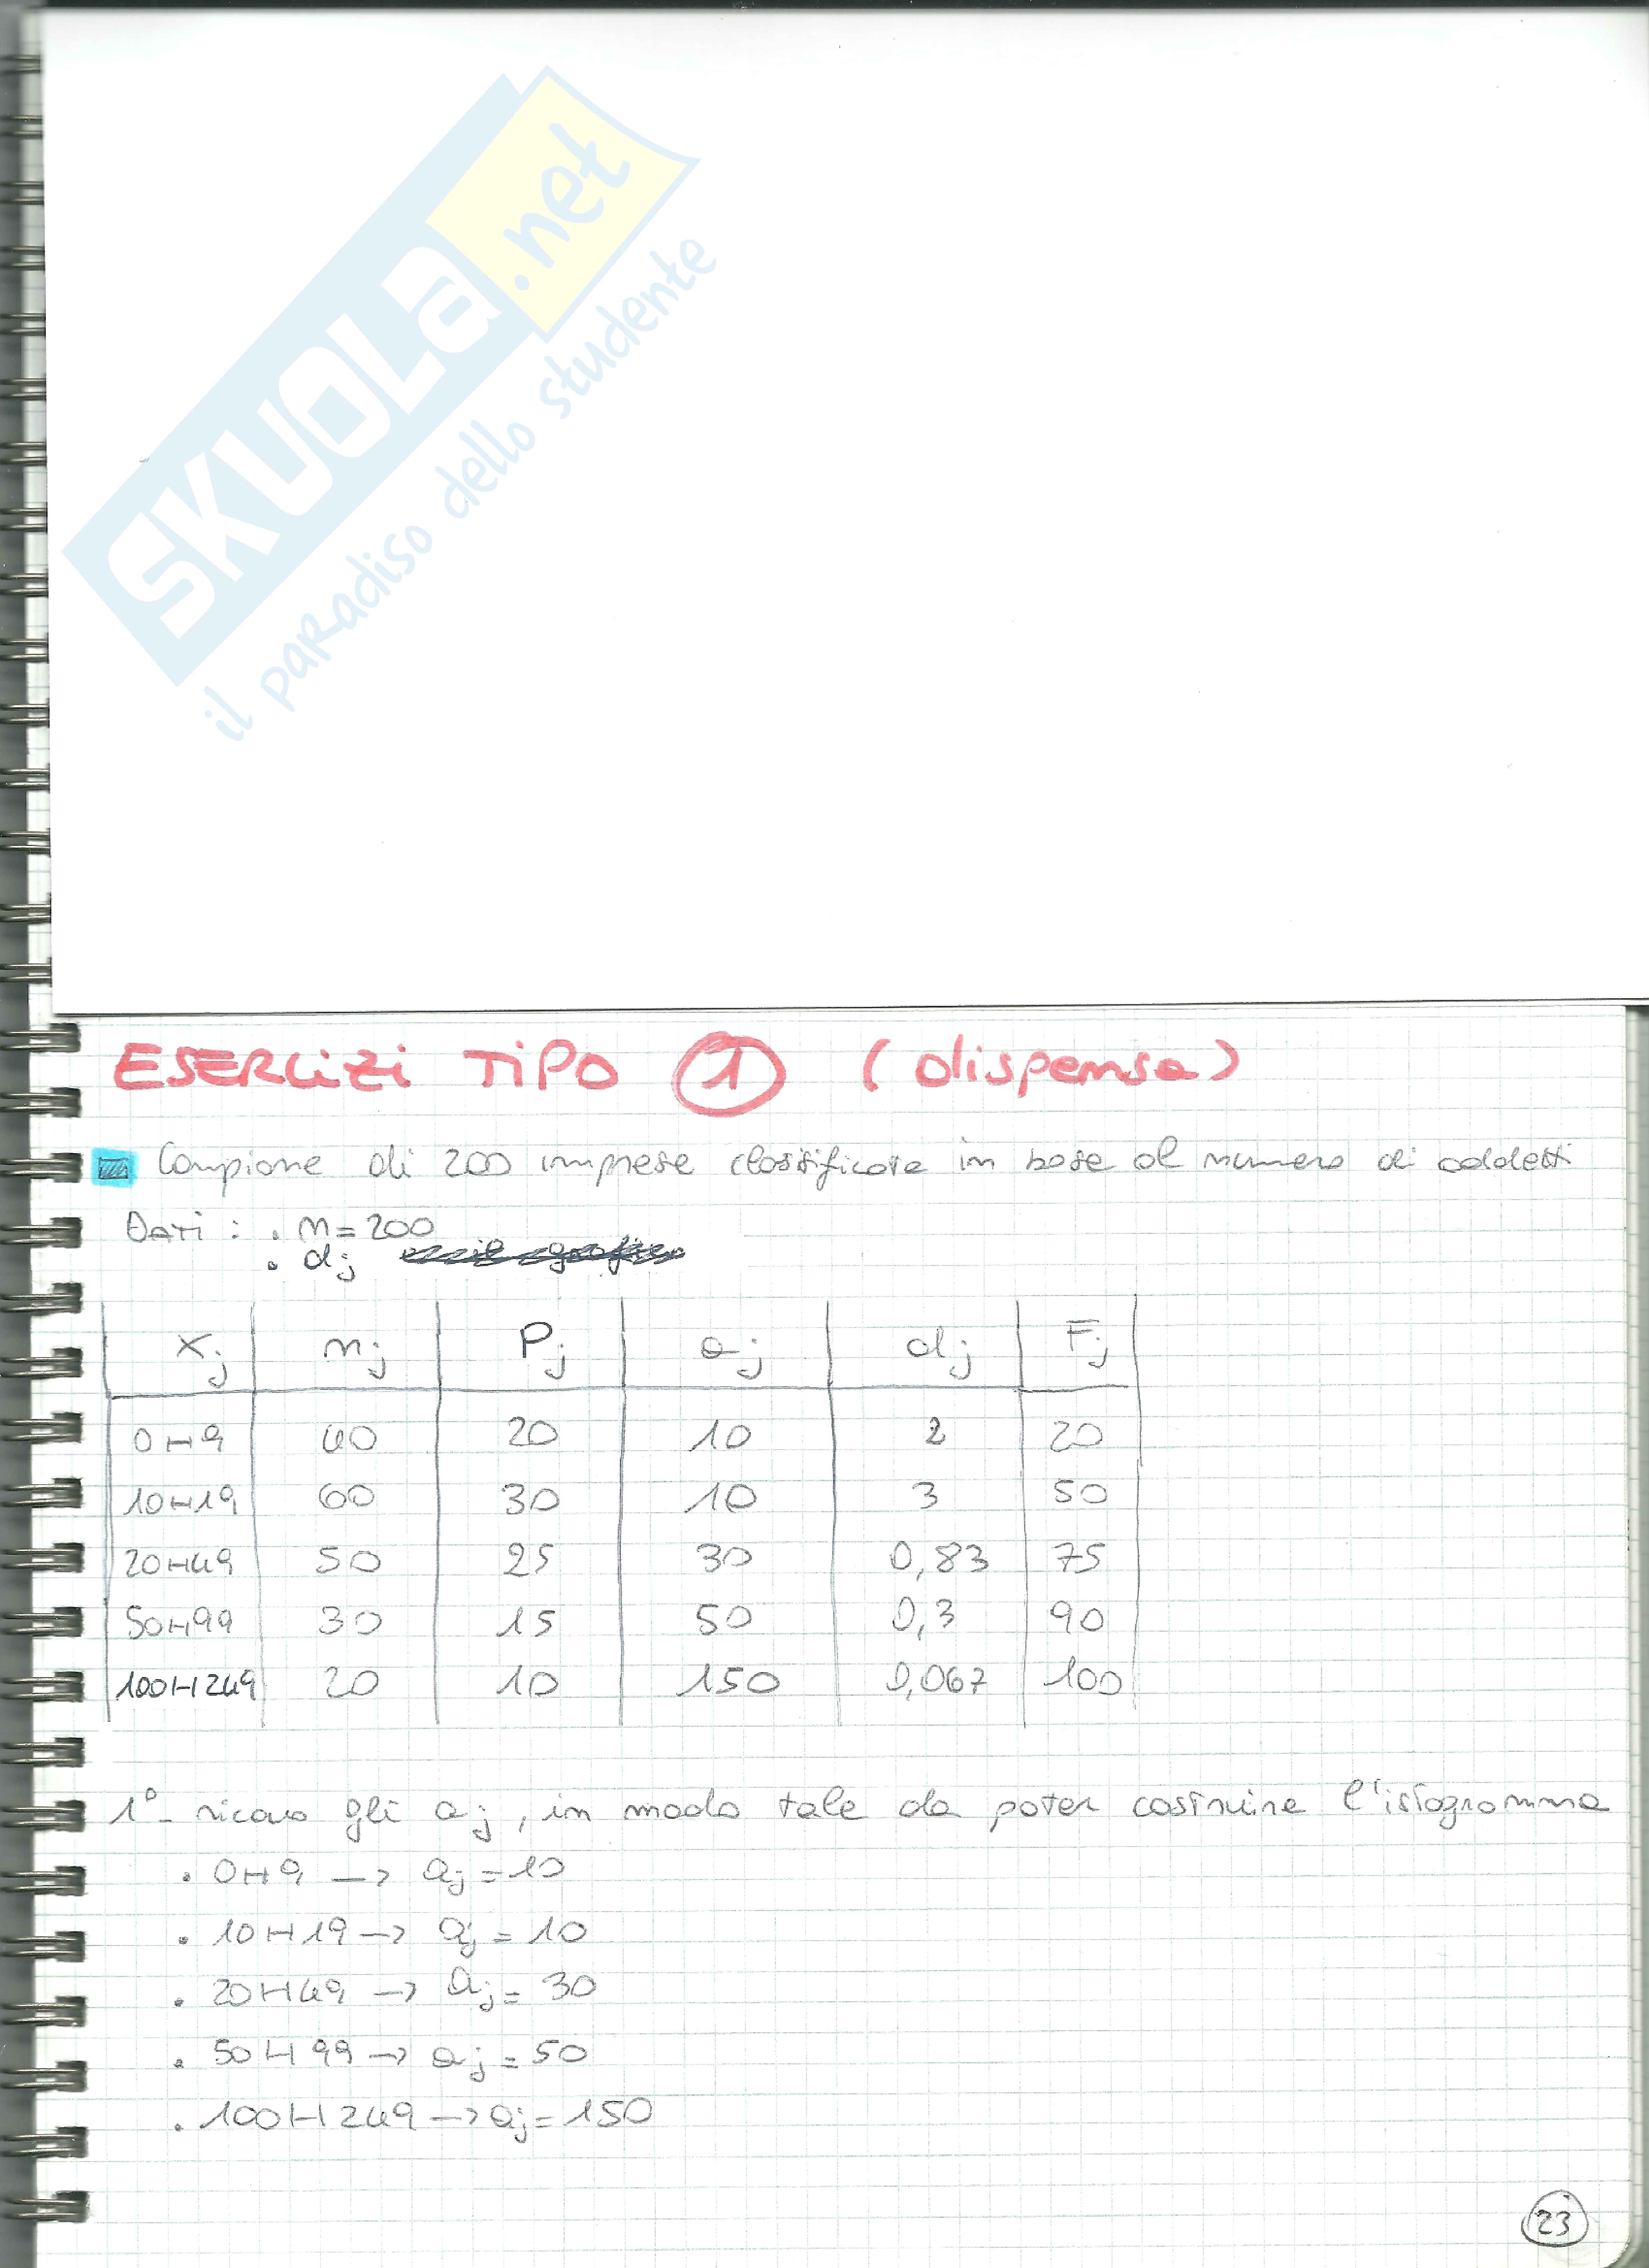 SKUOLA.net
il paradiso dello studente
ESERCIZI TIPO 1 (dispensa)
Campione di 200 imprese classificate in base al numero di addetti
DATI : . n=200
. dj
Xj nj Pj aj dj Fj
0H9 40 20 10 2 20
10H19 60 30 10 3 50
20H49 50 25 30 0,83 75
50H99 30 15 50 0,3 90
100H249 20 10 150 0,067 100
1°- ricavo gli aj, in modo tale da poter costruire l'istogramma
. 0H9 → aj=10
. 10H19 → aj=10
. 20H49 → aj=30
. 50H99 → aj=50
. 100H249 → aj=150
23